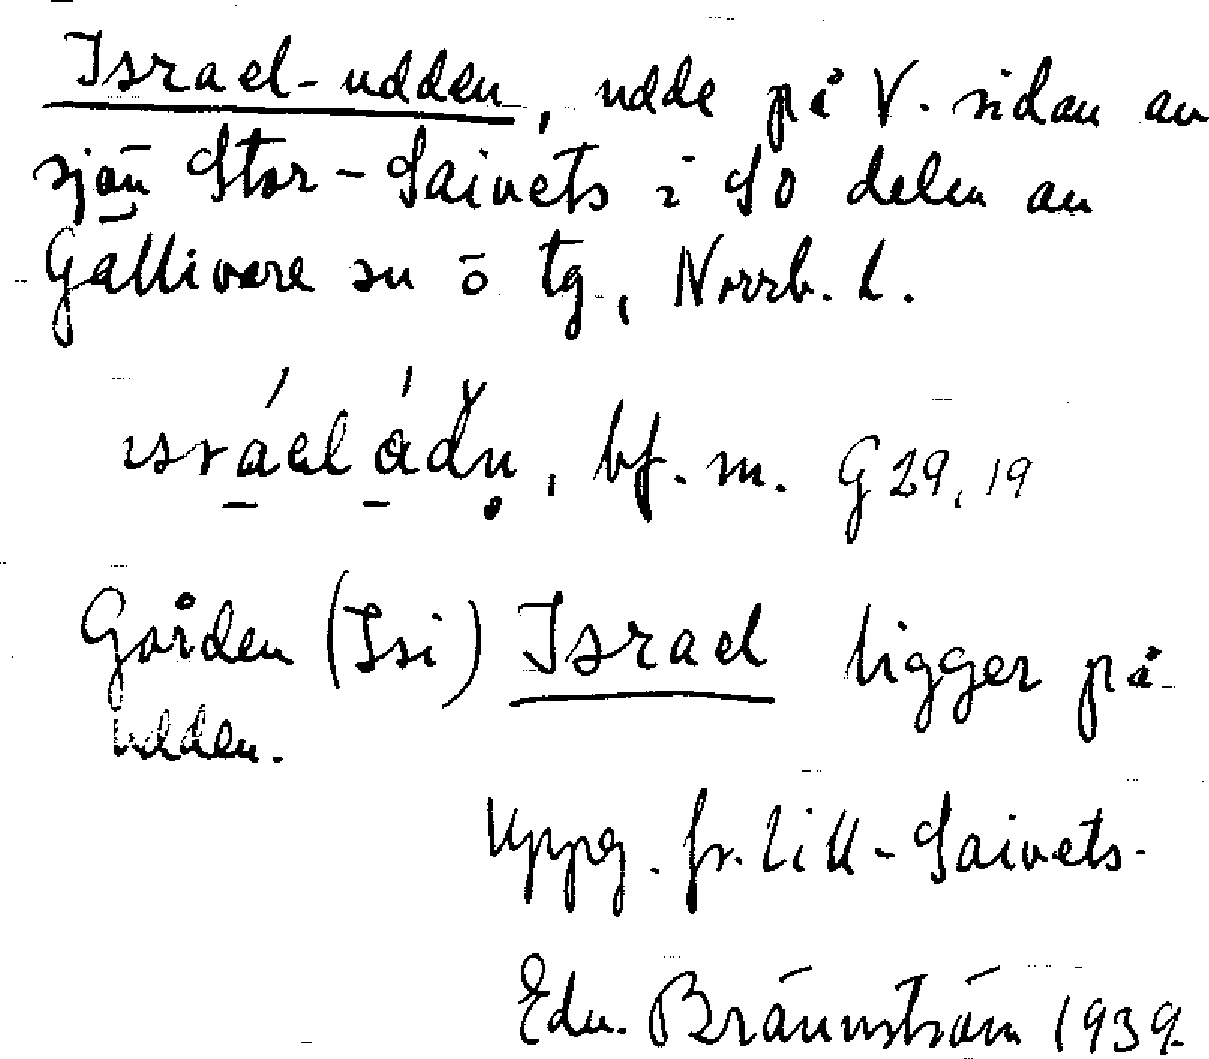 Israel-udden, udde på V. sidan av
sjön Stor-Saivets i SO delen av
Gällivare sn o tg, Norrb. l.
bf. m. G 29, 19
Gården (Isi) Israel ligger på
udden.
Uppg. fr. Lill-Saivets.
Edv. Brännström 1939.